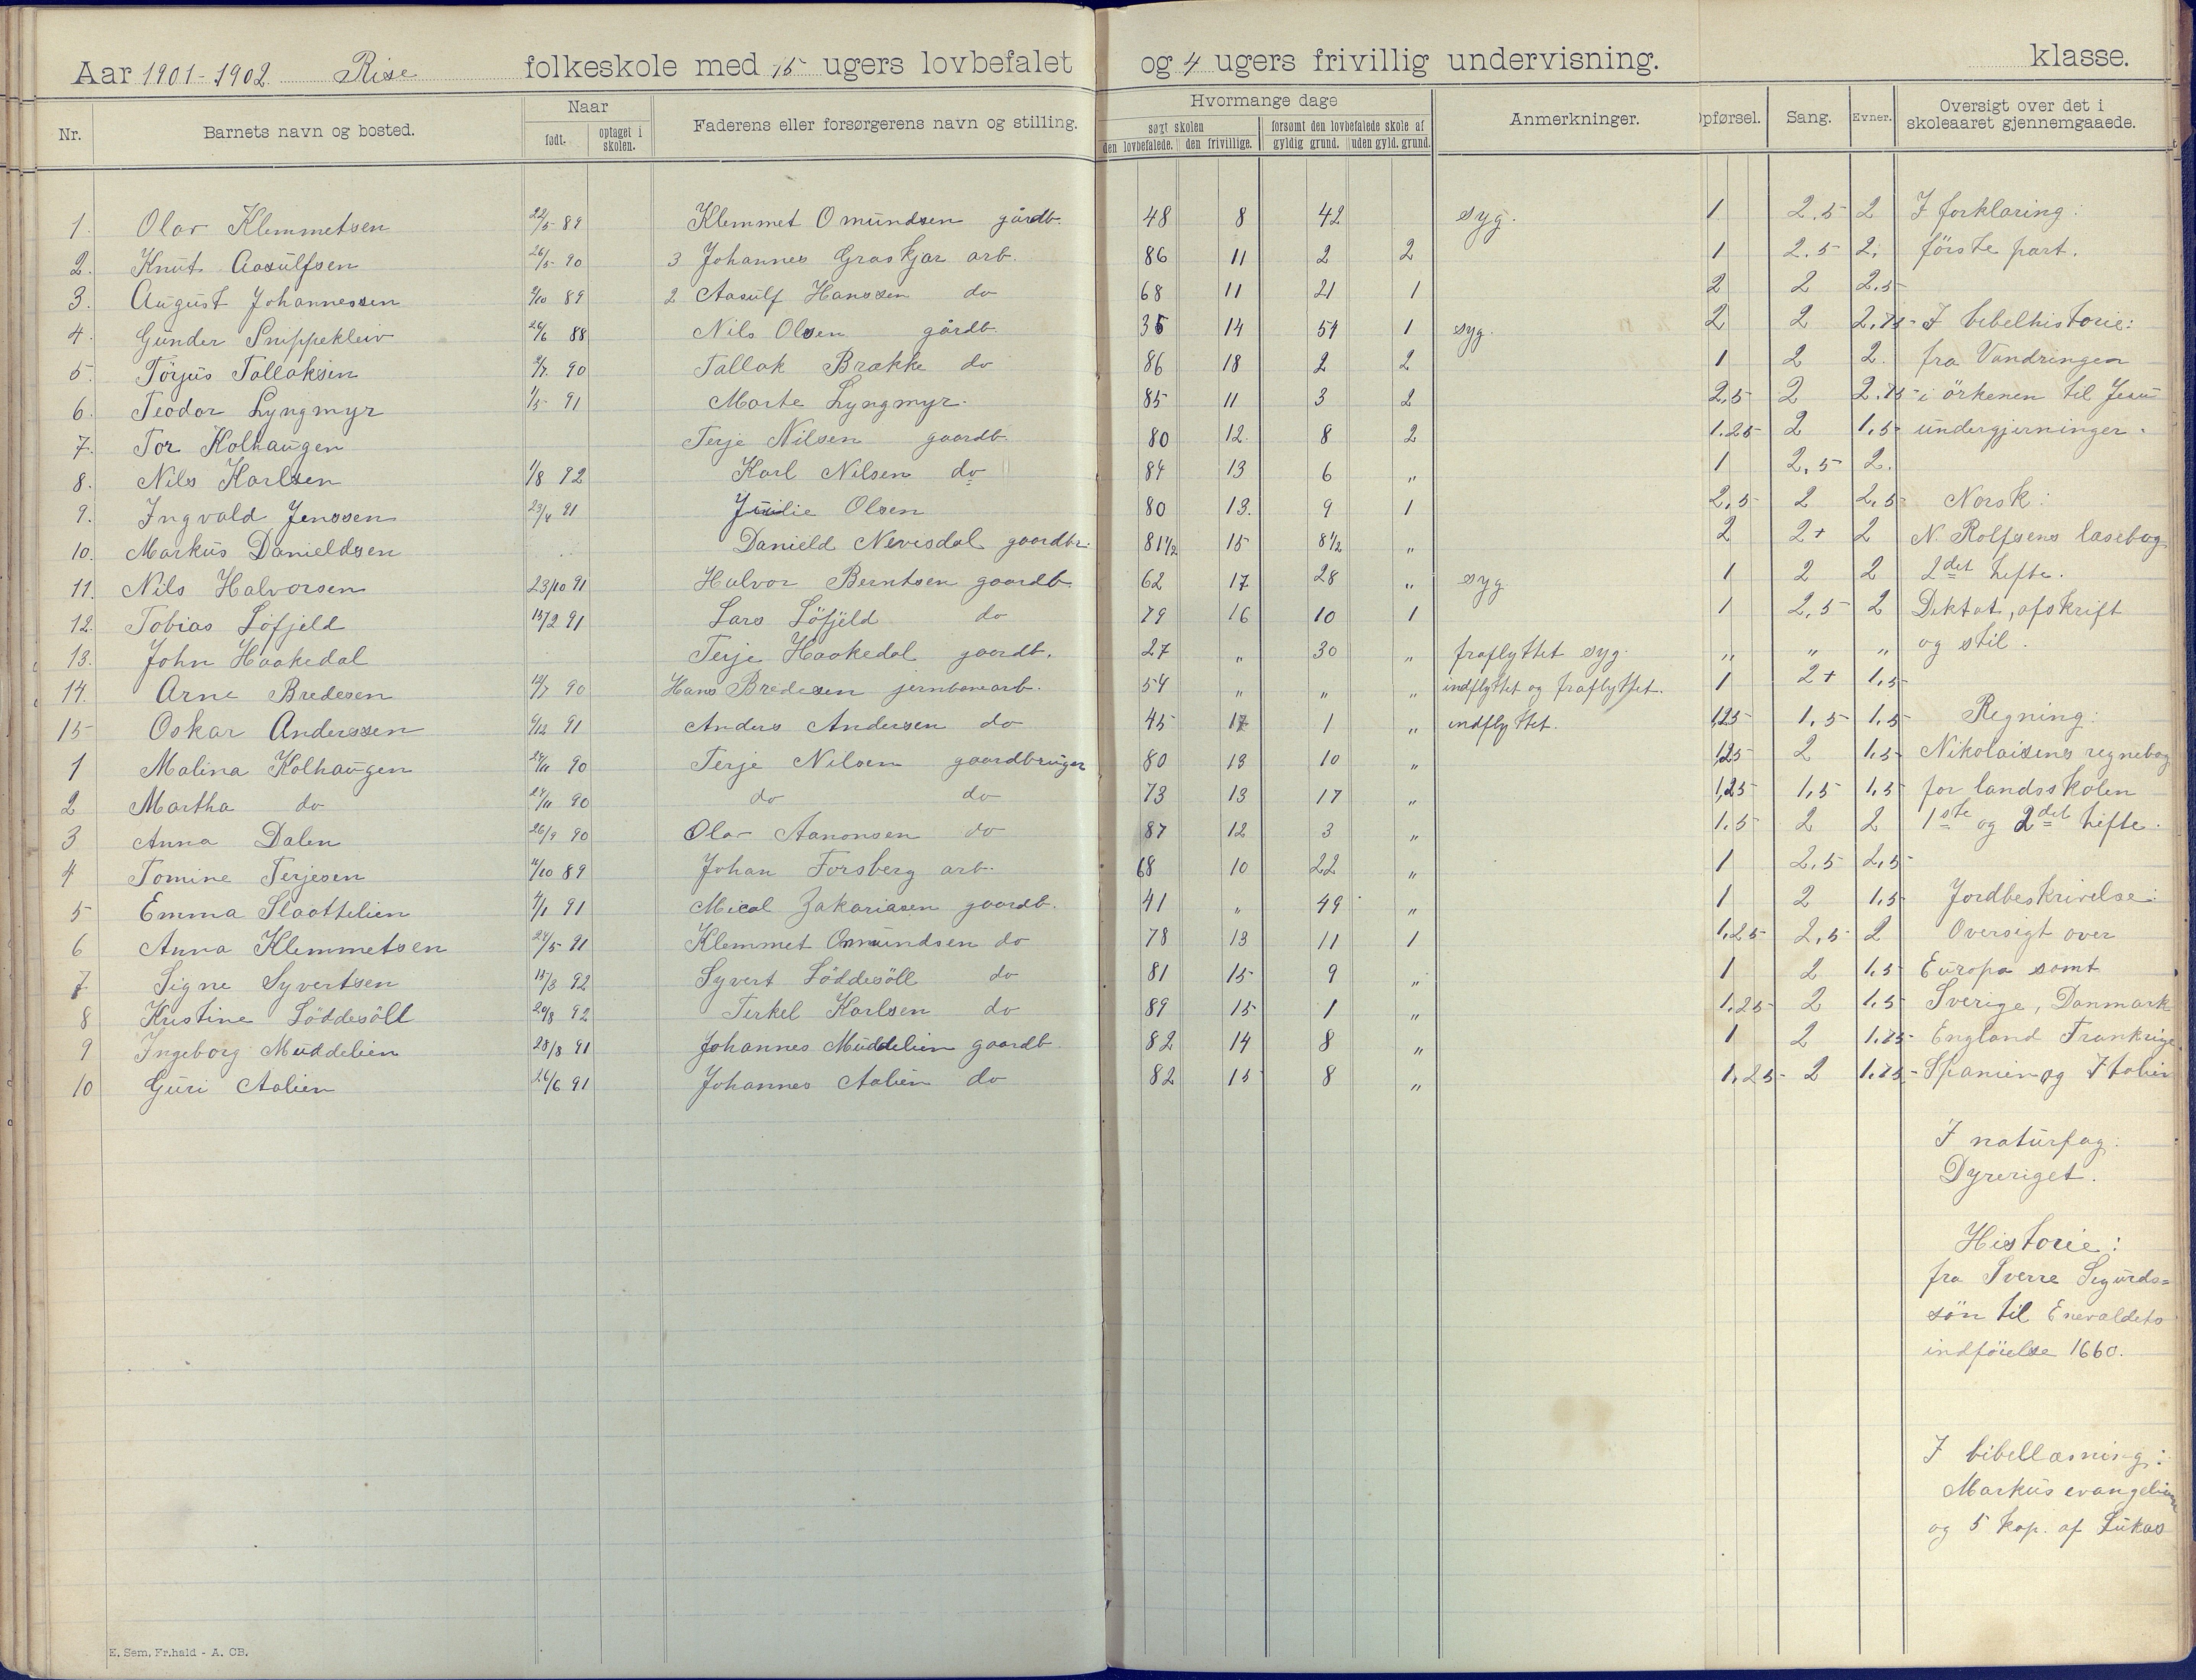 Aar 1901-1902 Rise folkeskole med 15 ugers lovbefalet og 4 ugers frivillig undervisning. klasse.
Nr. Barnets navn og bosted. Naar født. optaget i skolen. Faderens eller forsørgerens navn og stilling. Hvormange dage søgt skolen den lovbefalede. den frivillige. forsømt den lovbefalede skole af gyldig grund. uden gyld. grund. Anmerkninger. Opførsel. Sang. Evner. Oversigt over det i skoleaaret gjennemgaaede.
1. Olav Klemmetsen 22/5 89 Klemmet Omundsen gårdb. 48 8 42 syg. 1 2.5 2 I forklaring:
2. Knut Aasulfsen 26/5 90 3 Johannes Graskjær arb. 86 11 2 2 1 2.5 2. förste part.
3. August Johannessen 9/10 89 2 Aasulf Hanssen do 68 11 21 1 2 2 2.5
4. Gunder Snippekleiv 26/6 88 Nils Olsen gårdb. 35 14 54 1 syg. 2 2 2.75 I bibelhistorie:
5. Törjus Tallaksen 2/7. 90 Tallak Brække do 86 18 2 2 1 2 2. fra Vandringen
6. Teodor Lyngmyr 1/5 91 Marte Lyngmyr. 85 11 3 2 2,5 2 2.75 i örkenen til Jesu
7. Tor Kolhaugen Terje Nilsen gaardb. 80 12. 8 2 1.25 2 1.5 undergjerninger.
8. Nils Karlsen 1/8 92 Karl Nilsen do 84 13 6 " 1 2,5 2.
9. Ingvald Jenssen 23/4 91 Julie Olsen 80 13. 9 1 2,5 2 2,5 Norsk:
10. Markus Danieldsen Danield Nevesdal gaardbr. 81 1/2 15 8 1/2 " 2 2+ 2 N. Rolfsens læsebog
11. Nils Halvorsen 23/10 91 Halvor Berntsen gaardb. 62 17 28 " syg. 1 2 2 2det hefte.
12. Tobias Löfjeld 13/2 91 Lars Löfjeld do 79 16 10 1 1 2,5 2 Diktat, afskrift
13. John Haakedal Terje Haakedal gaardb. 27 " 30 " fraflyttet syg. " " " og stil.
14. Arne Bredesen 12/7 90 Hans Bredesen jernbanearb. 54 " " " indflyttet og fraflyttet. 1 2+ 1,5
15 Oskar Anderssen 6/12 91 Anders Andersen do 45 17 1 " indflyttet. 1,25 1,5 1,5 Regning:
1 Malina Kolhaugen 24/11 90 Terje Nilsen gaardbruger 80 13 10 " 1,25 2 1,5 Nikolaisens regnebog
2 Martha do 24/11 90 do do 73 13 17 " 1,25 1,5 1,5 for landsskolen
3 Anna Dalen 26/9 90 Olav Aanonsen do 87 12 3 " 1,5 2 2 1ste og 2det hefte.
4 Tomine Terjesen 11/10 89 Johan Forsberg arb. 68 10 22 " 1 2,5 2,5
5 Emma Slaattelien 4/1 91 Mical Zakariasen gaardb. 41 " 49 " 1 2 1,5 Jordbeskrivelse:
6 Anna Klemmetsen 24/5 91 Klemmet Omundsen do 78 13 11 1 1,25 2,5 2 Oversigt over
7 Signe Syvertsen 15/3 92 Syvert Löddesöll do 81 15 9 " 1 2 1,5 Europa samt
8 Kristine Löddesöll 20/8 92 Terkel Karlsen do 89 15 1 " 1,25 2 1.5 Sverige, Danmark
9 Ingeborg Muddelien 28/8 91 Johannes Muddelien gaardb 82 14 8 " 1 2 1.75 England Frankrige
10 Guri Aalien 26/6 91 Johannes Aalien do 82 15 8 " 1,25 2 1.75 Spanien og Italien
I naturfag:
Dyreriget.
Historie:
fra Sverre Sigurds=
sön til Enevaldets
indförelse 1660.
I bibellæsning:
Markus evangelium
og 5 kap. af Lukas
E. Sem, Fr.hald - A. CB.